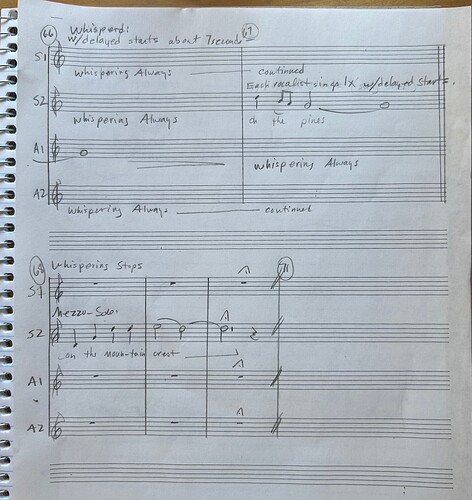 66 Whisperd: 67
w/delayed starts about 7seconds
S1
whispering Always continued
Each vocalist sings 1x w/delayed starts.
S2
whispering Always on the pines
A1
whispering Always
A2
whispering Always continued
68 Whispering Stops 71
S1
Mezzo-Solo.
S2
on the moun-tain crest
A1
A2